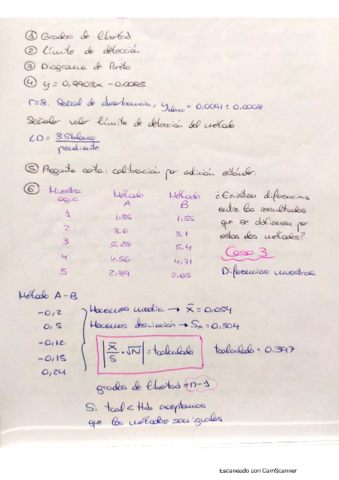 ① Grados de libertad
② Límite de detección
③ Diagrama de Pareto
④ y = 0,9903x - 0,0085
r=8. Señal de absorbancia, yblanco = 0,0091 ± 0,0008
Señalar valor límite de detección del método
LD = 3·Sblanco / pendiente
⑤ Pregunta corta: calibración por adición estándar.
⑥ Muestra agua Método A Método B
1 1.35 1.55
2 3.6 3.1
3 5.28 5.4
4 4.56 4.71
5 2.89 2.65
¿Existen diferencias
entre los resultados
que se obtienen por
estos dos métodos?
Caso 3
Diferencias muestras
Método A - B
-0,2
0,5
-0,12
-0,15
0,24
Hacemos media → x̄ = 0.054
Hacemos desviación → Sx = 0.304
| x̄/S · √N | = tcalculado tcalculado = 0.397
grados de libertad = n-1
Si tcal < ttab aceptamos
que los métodos son iguales
Escaneado con CamScanner